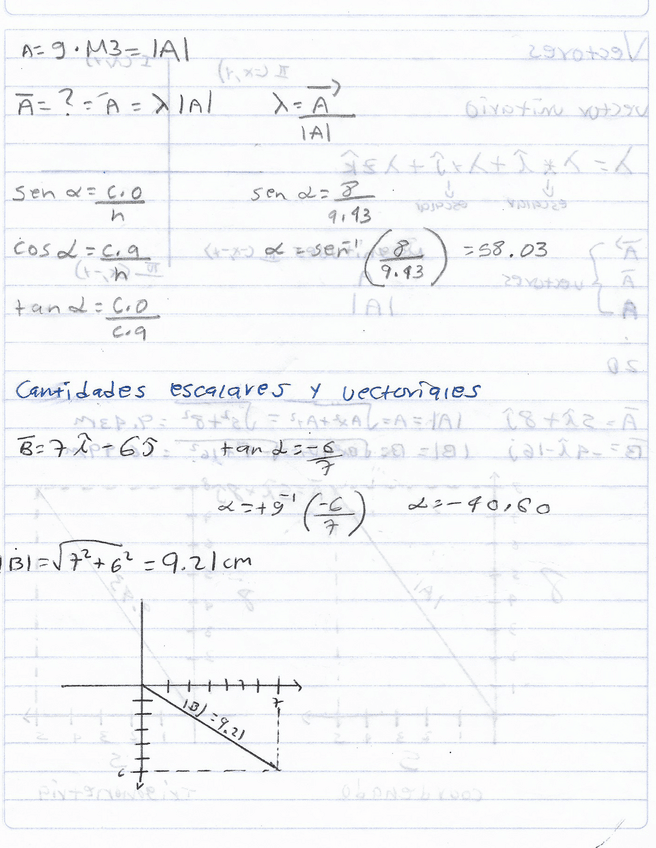 A = 9.43 = |A|
Ā = ? = Ā = λ |A|   λ = A⃗ / |A|
sen α = c.o / h   sen α = 8 / 9.43
cos α = c.a / h   α = sen⁻¹ (8 / 9.43) = 58.03
tan α = c.o / c.a
Cantidades escalares y vectoriales
B̄ = 7 î - 6 ĵ   tan α = -6 / 7
α = tg⁻¹ (-6 / 7)   α = -40.60
|B| = √7² + 6² = 9.21 cm
|B| = 9.21
7
6